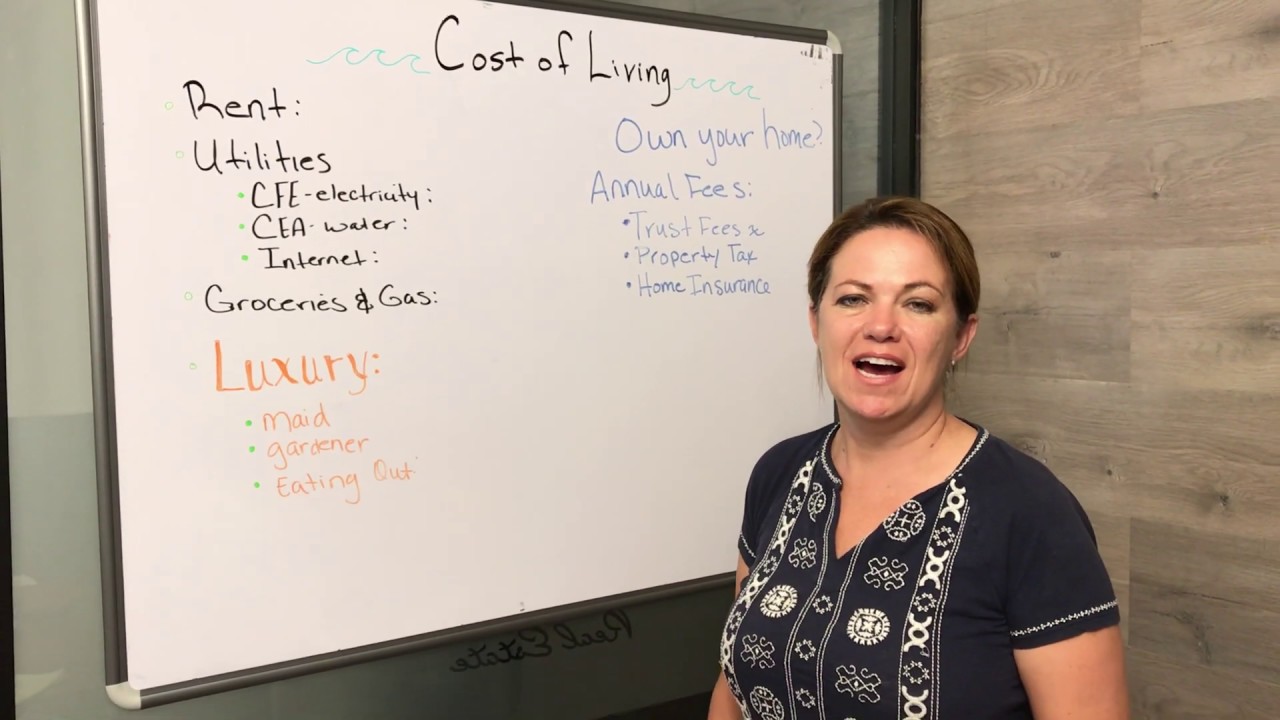 Cost of Living
Rent:
Utilities
CFE-electricity:
CEA-water:
Internet:
Groceries & Gas:
Luxury:
maid
gardener
Eating Out
Own your home?
Annual Fees:
Trust Fees
Property Tax
Home Insurance
Real Estate